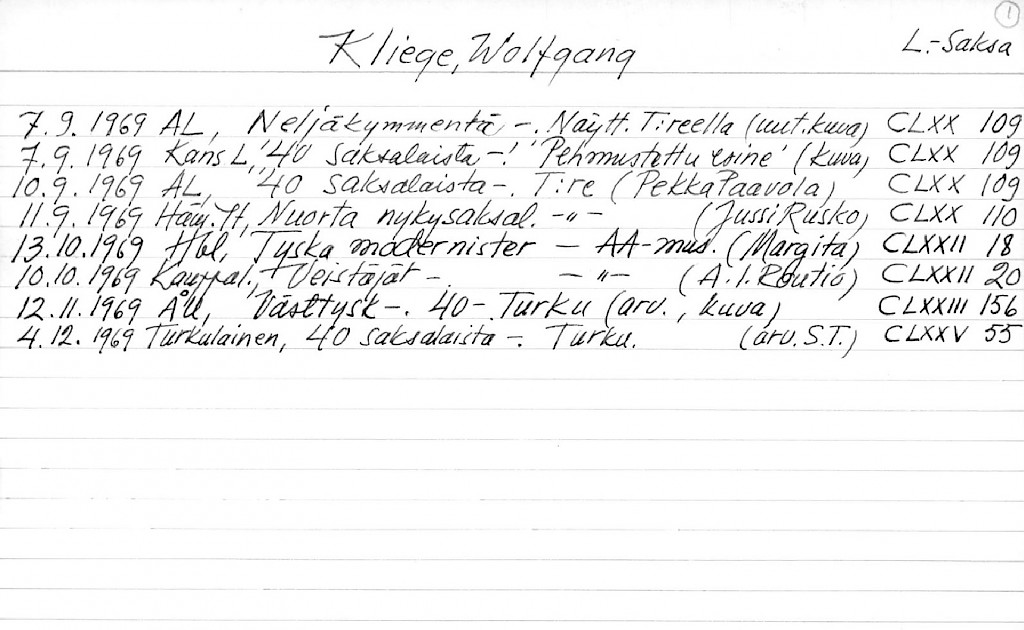 1
Kliege, Wolfgang L.-Saksa
7.9.1969 AL, Neljäkymmentä -. Näytt. Tireella (uut.kuva) CLXX 109
7.9.1969 Kans L, '40 saksalaista -! 'Pehmustettu esine' (kuva) CLXX 109
10.9.1969 AL, '40 saksalaista -. Tire (Pekka Paavola) CLXX 109
11.9.1969 Häm. YH, Nuorta nykysaksal. -"- (Jussi Rusko) CLXX 110
13.10.1969 Hbl, Tyska modernister - AA-mus. (Margita) CLXXII 18
10.10.1969 Kauppal., Veistäjät - . -"- (A.I. Routio) CLXXII 20
12.11.1969 ÅU, Västtysk -. 40 - Turku (arv., kuva) CLXXIII 156
4.12.1969 Turkulainen, 40 saksalaista -. Turku. (arv. S.T.) CLXXV 55